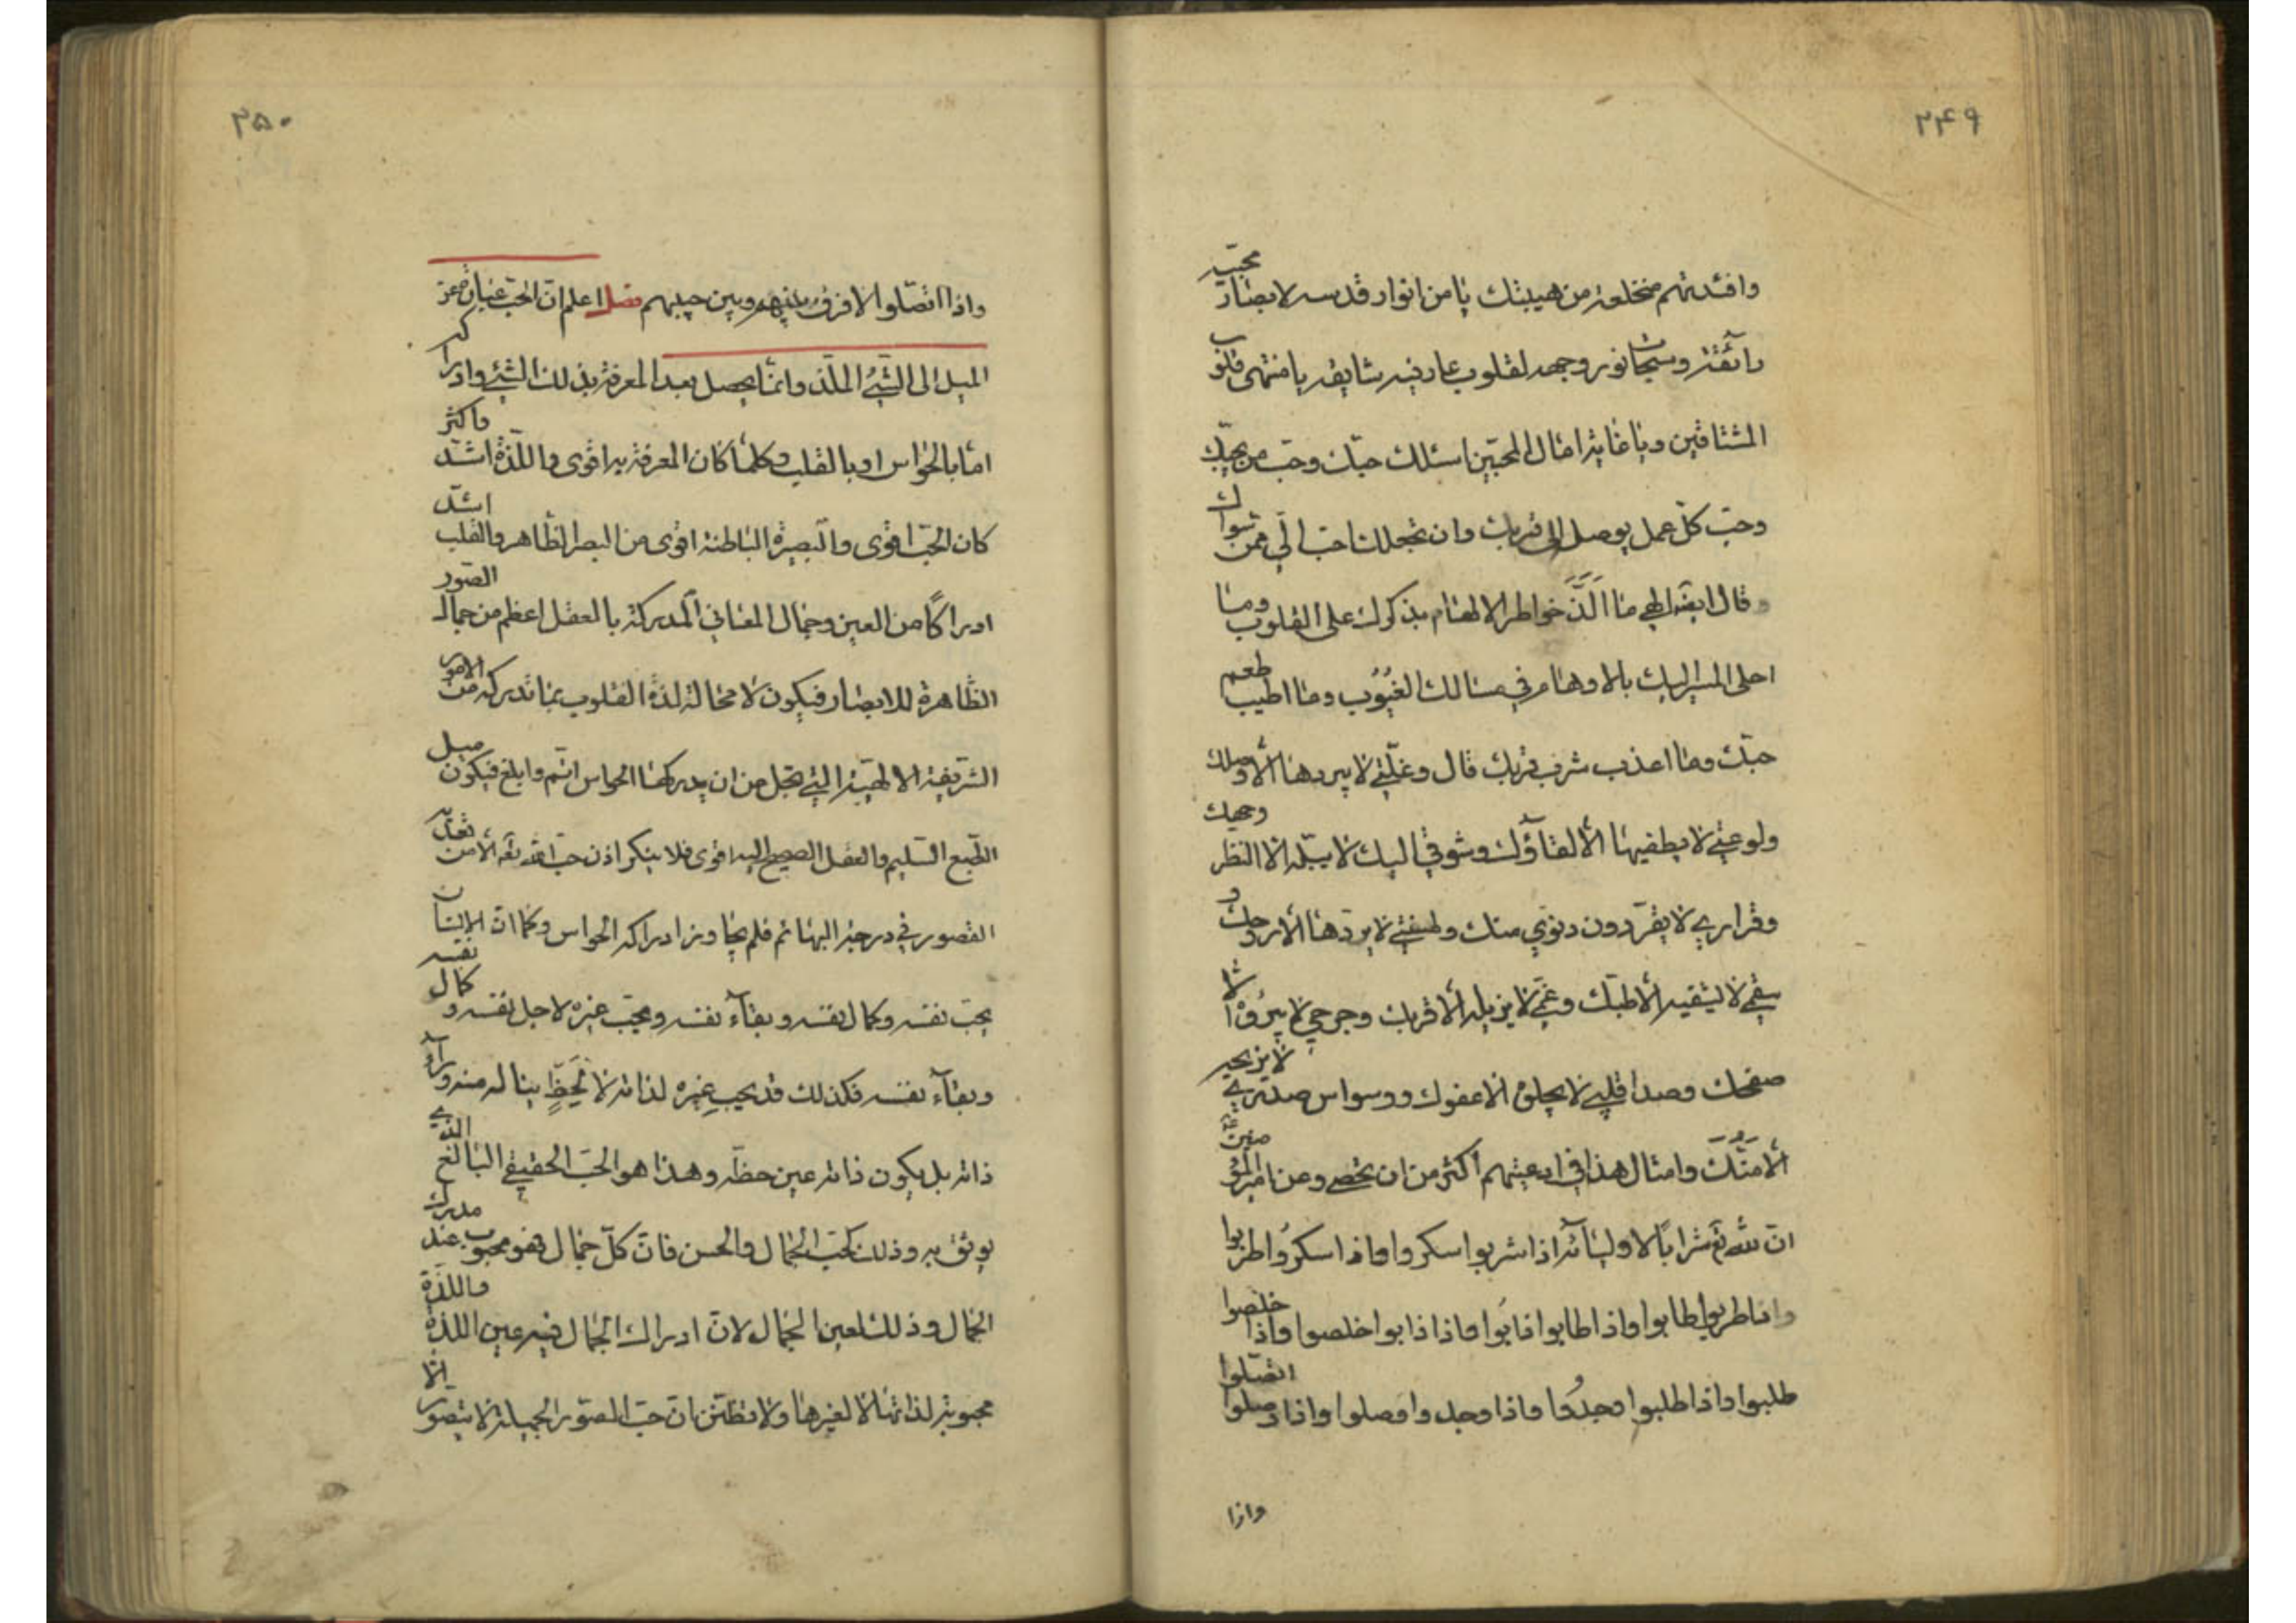 ۲۴۹
وافئدتهم منخلعة من هيبتك يا من انوار قدسه لابصار محبيه
رائقة وسبحات نور وجهه لقلوب عارفيه شايقه يا منتهى قلوب
المشتاقين ويا غاية امال المحبين اسئلك حبك وحب من يحبك
وحب كل عمل يوصل الى قربك وان تجعلك احب الي ممن سواك
وقال ايضه الهي ما الذ خواطر الالهام بذكرك على القلوب وما
احلى المسير اليك بالاوهام في مسالك الغيوب وما اطيب طعم
حبك وما اعذب شرب قربك قال وغلتي لا يبردها الا وصلك
ولوعتي لا يطفيها الا لقاؤك وشوقي اليك لا يبله الا النظر وجهك
وقراري لا يقر دون دنوي منك ولهفتي لا يردها الا روحك و
سقمي لا يشفيه الا طبك وغمي لا يزيله الا قربك وجرحي لا يبرؤه الا
صفحك وصدا قلبي لا يجلوه الا عفوك ووسواس صدري لا يزيحه
الا منك وامثال هذا في ادعيتهم اكثر من ان تحصى وعن امير المؤمنين ع
ان لله تع شرابا لاوليائه اذا شربوا سكروا واذا سكروا طربوا
واذا طربوا طابوا واذا طابوا ذابوا واذا ذابوا خلصوا واذا خلصوا
طلبوا واذا طلبوا وجدوا واذا وجدوا وصلوا واذا وصلوا اتصلوا
واذا
۲۵۰
واذا اتصلوا لا فرق بينهم وبين حبيبهم فصل اعلم ان الحب عبارة عن
الميل الى الشيء الملذ وانما يحصل بعد المعرفة بذلك الشيء وادراكه
اما بالحواس او بالقلب وكلما كان المعرفة به اقوى واللذة اشد واكثر
كان الحب اقوى والبصيرة الباطنة اقوى من البصر الظاهر والقلب اشد
ادراكا من العين وجمال المعاني المدركة بالعقل اعظم من جمال الصور
الظاهرة للابصار فيكون لا محالة لذة القلوب بما تدركه من الامور
الشريفة الالهية التي تجل من ان يدركها الحواس اتم وابلغ فيكون ميل
الطبع السليم والعقل الصحيح اليه اقوى فلا ينكر اذن حب الله تعه الا من
القصور في درجة البهائم فلم يجاوز ادراكه الحواس وكما ان الانسان
يحب نفسه وكمال نفسه وبقآء نفسه ويحب غيره لاجل نفسه وكمال نفسه
وبقآء نفسه فكذلك قد يحب غيره لذاته لا لحظ يناله منه ورآء
ذاته بل يكون ذاته عين حظه وهذا هو الحب الحقيقي البالغ الذي
يوثق به وذلك كحب الجمال والحسن فان كل جمال فهو محبوب عند مدرك
الجمال وذلك لعين الجمال لان ادراك الجمال فيه عين اللذة واللذة
محبوبة لذاتها لا لغيرها ولا تظنن ان حب الصور الجميلة لا يتصور الا